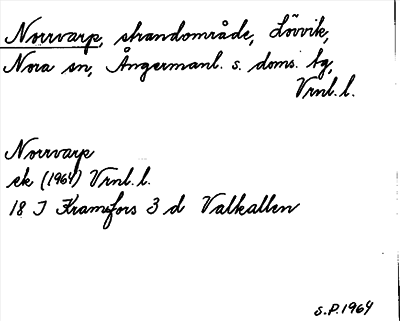 Norrvarp, strandområde, Lövvik,
Nora sn, Ångermanl. s. doms. tg,
Vrnl. l.
Norrvarp
ek (1964) Vrnl. l.
18 I Kramfors 3 d Valkallen
S.P. 1964